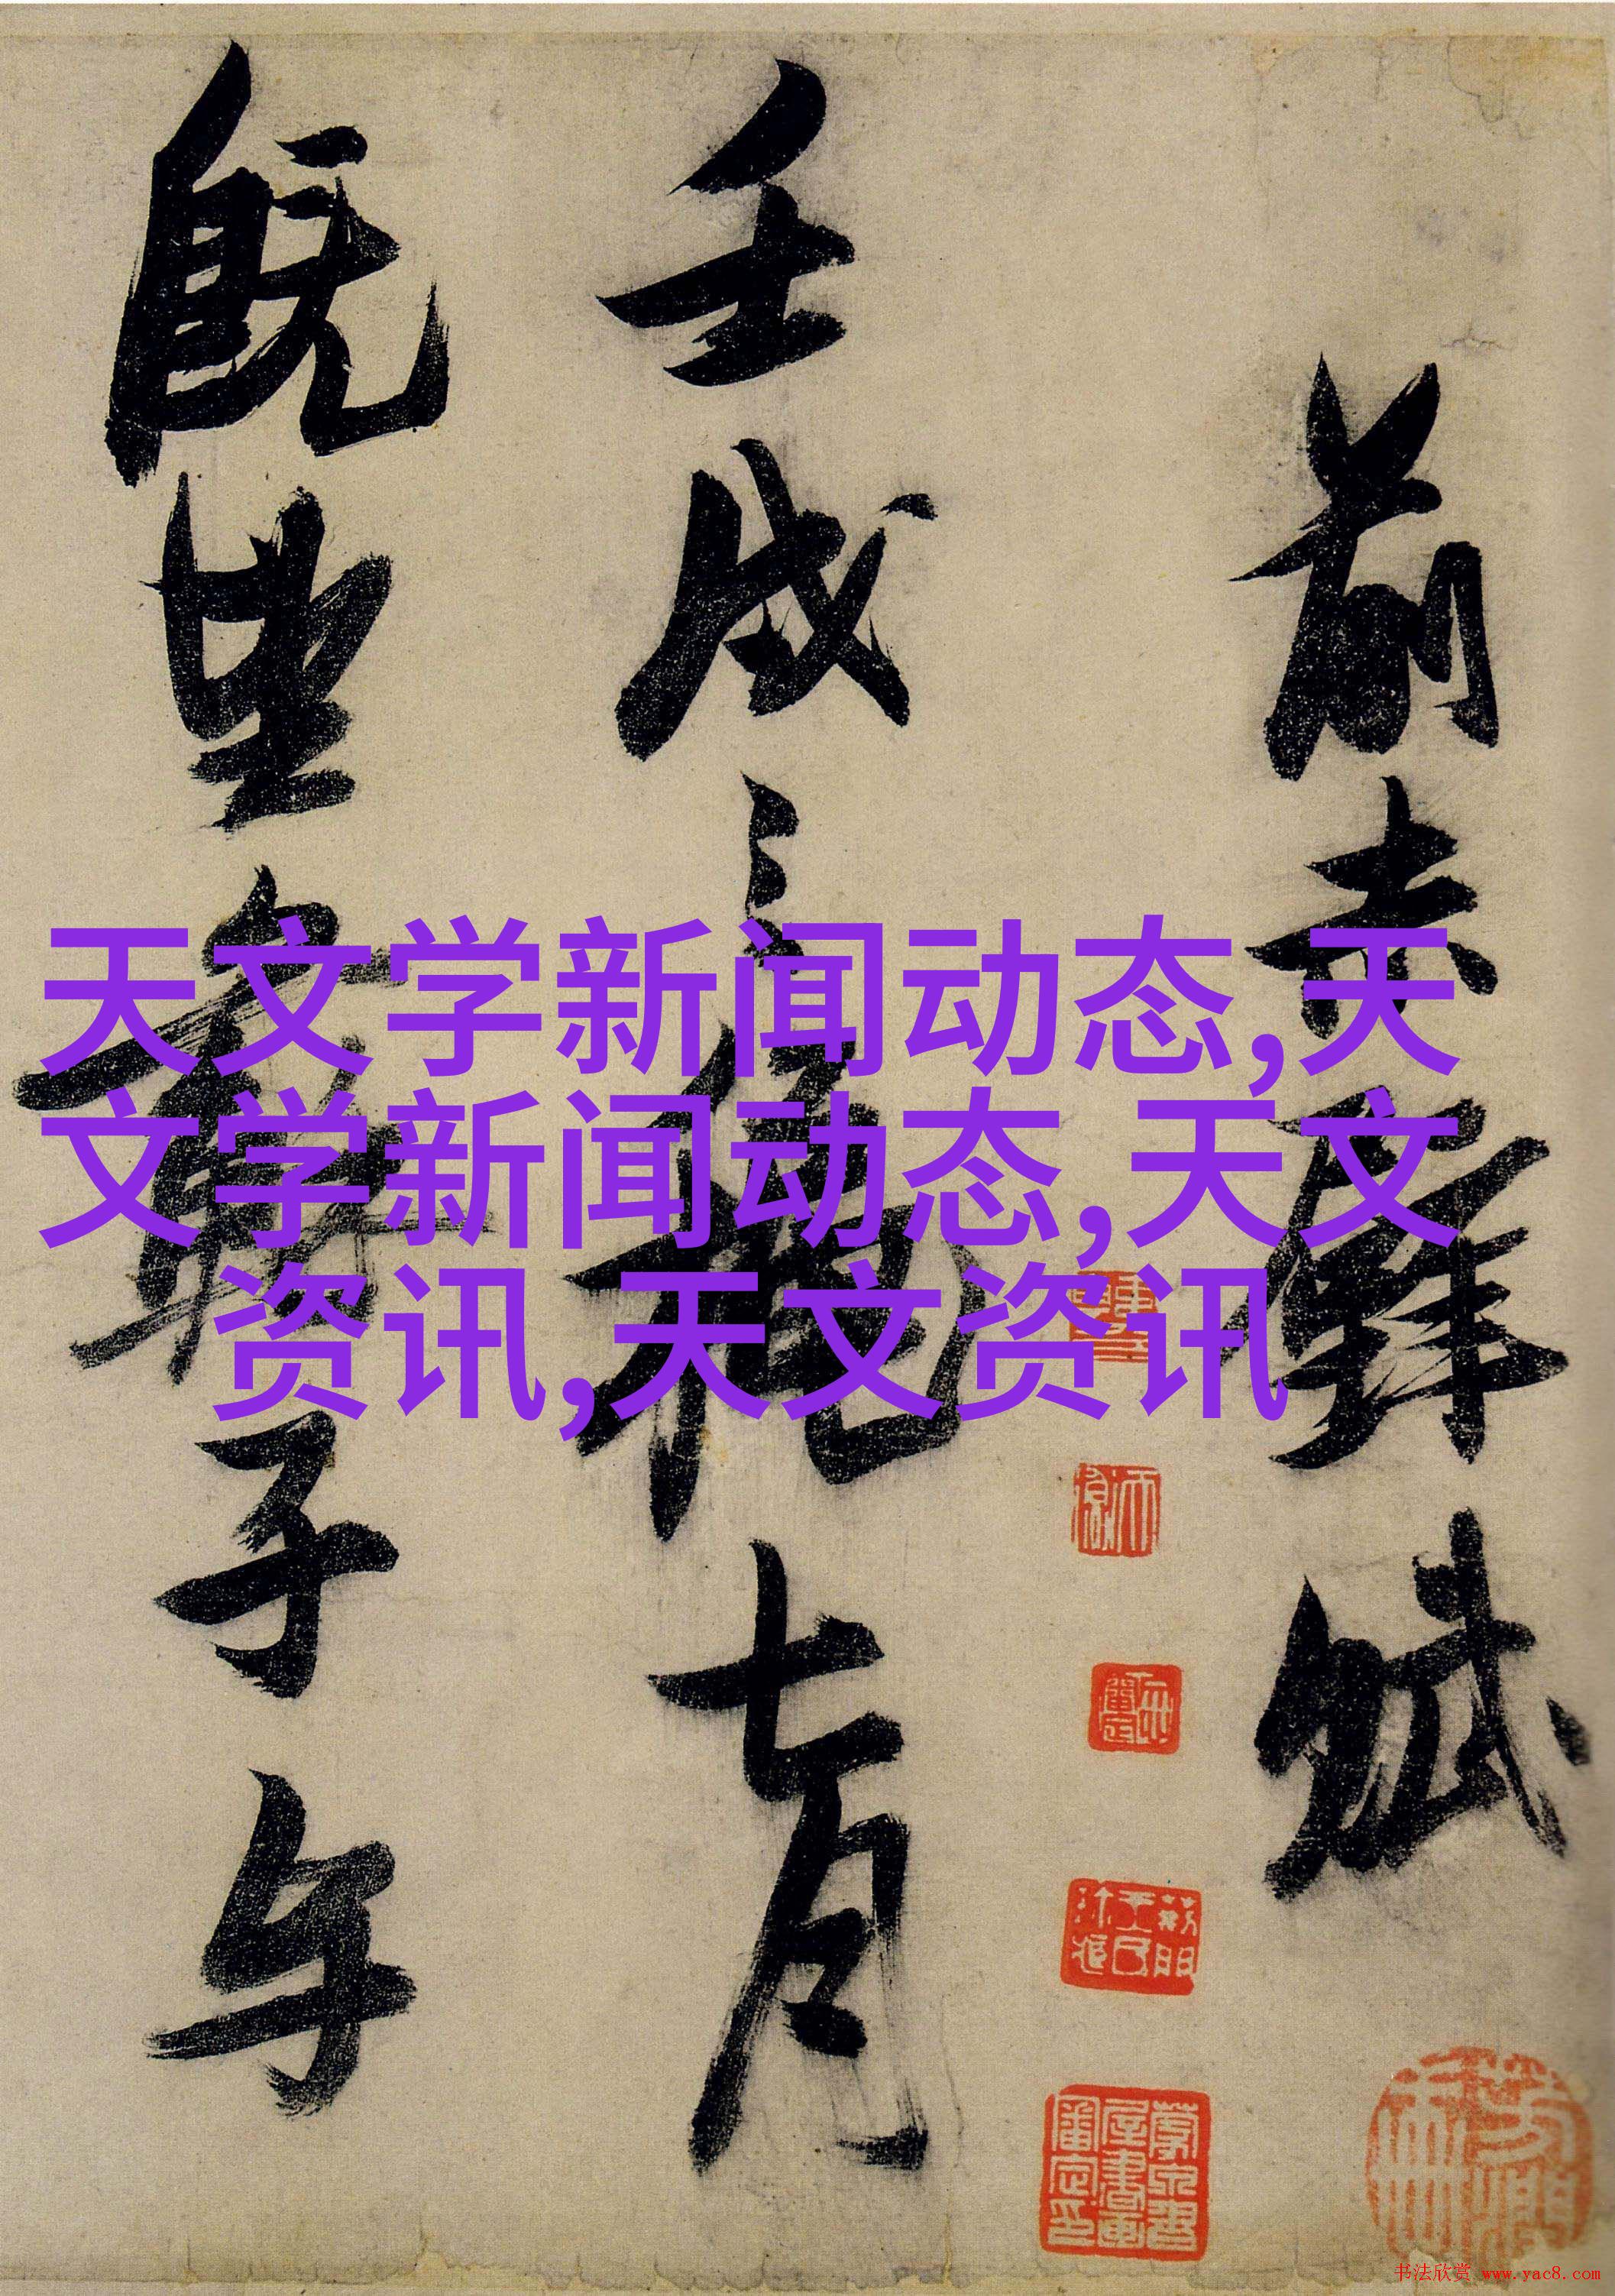 前赤壁賦
壬戌之秋七月
既望蘇子与
天文学新闻动态,天
文学新闻动态,天文
资讯,天文资讯
书法欣赏 www.yac8.com